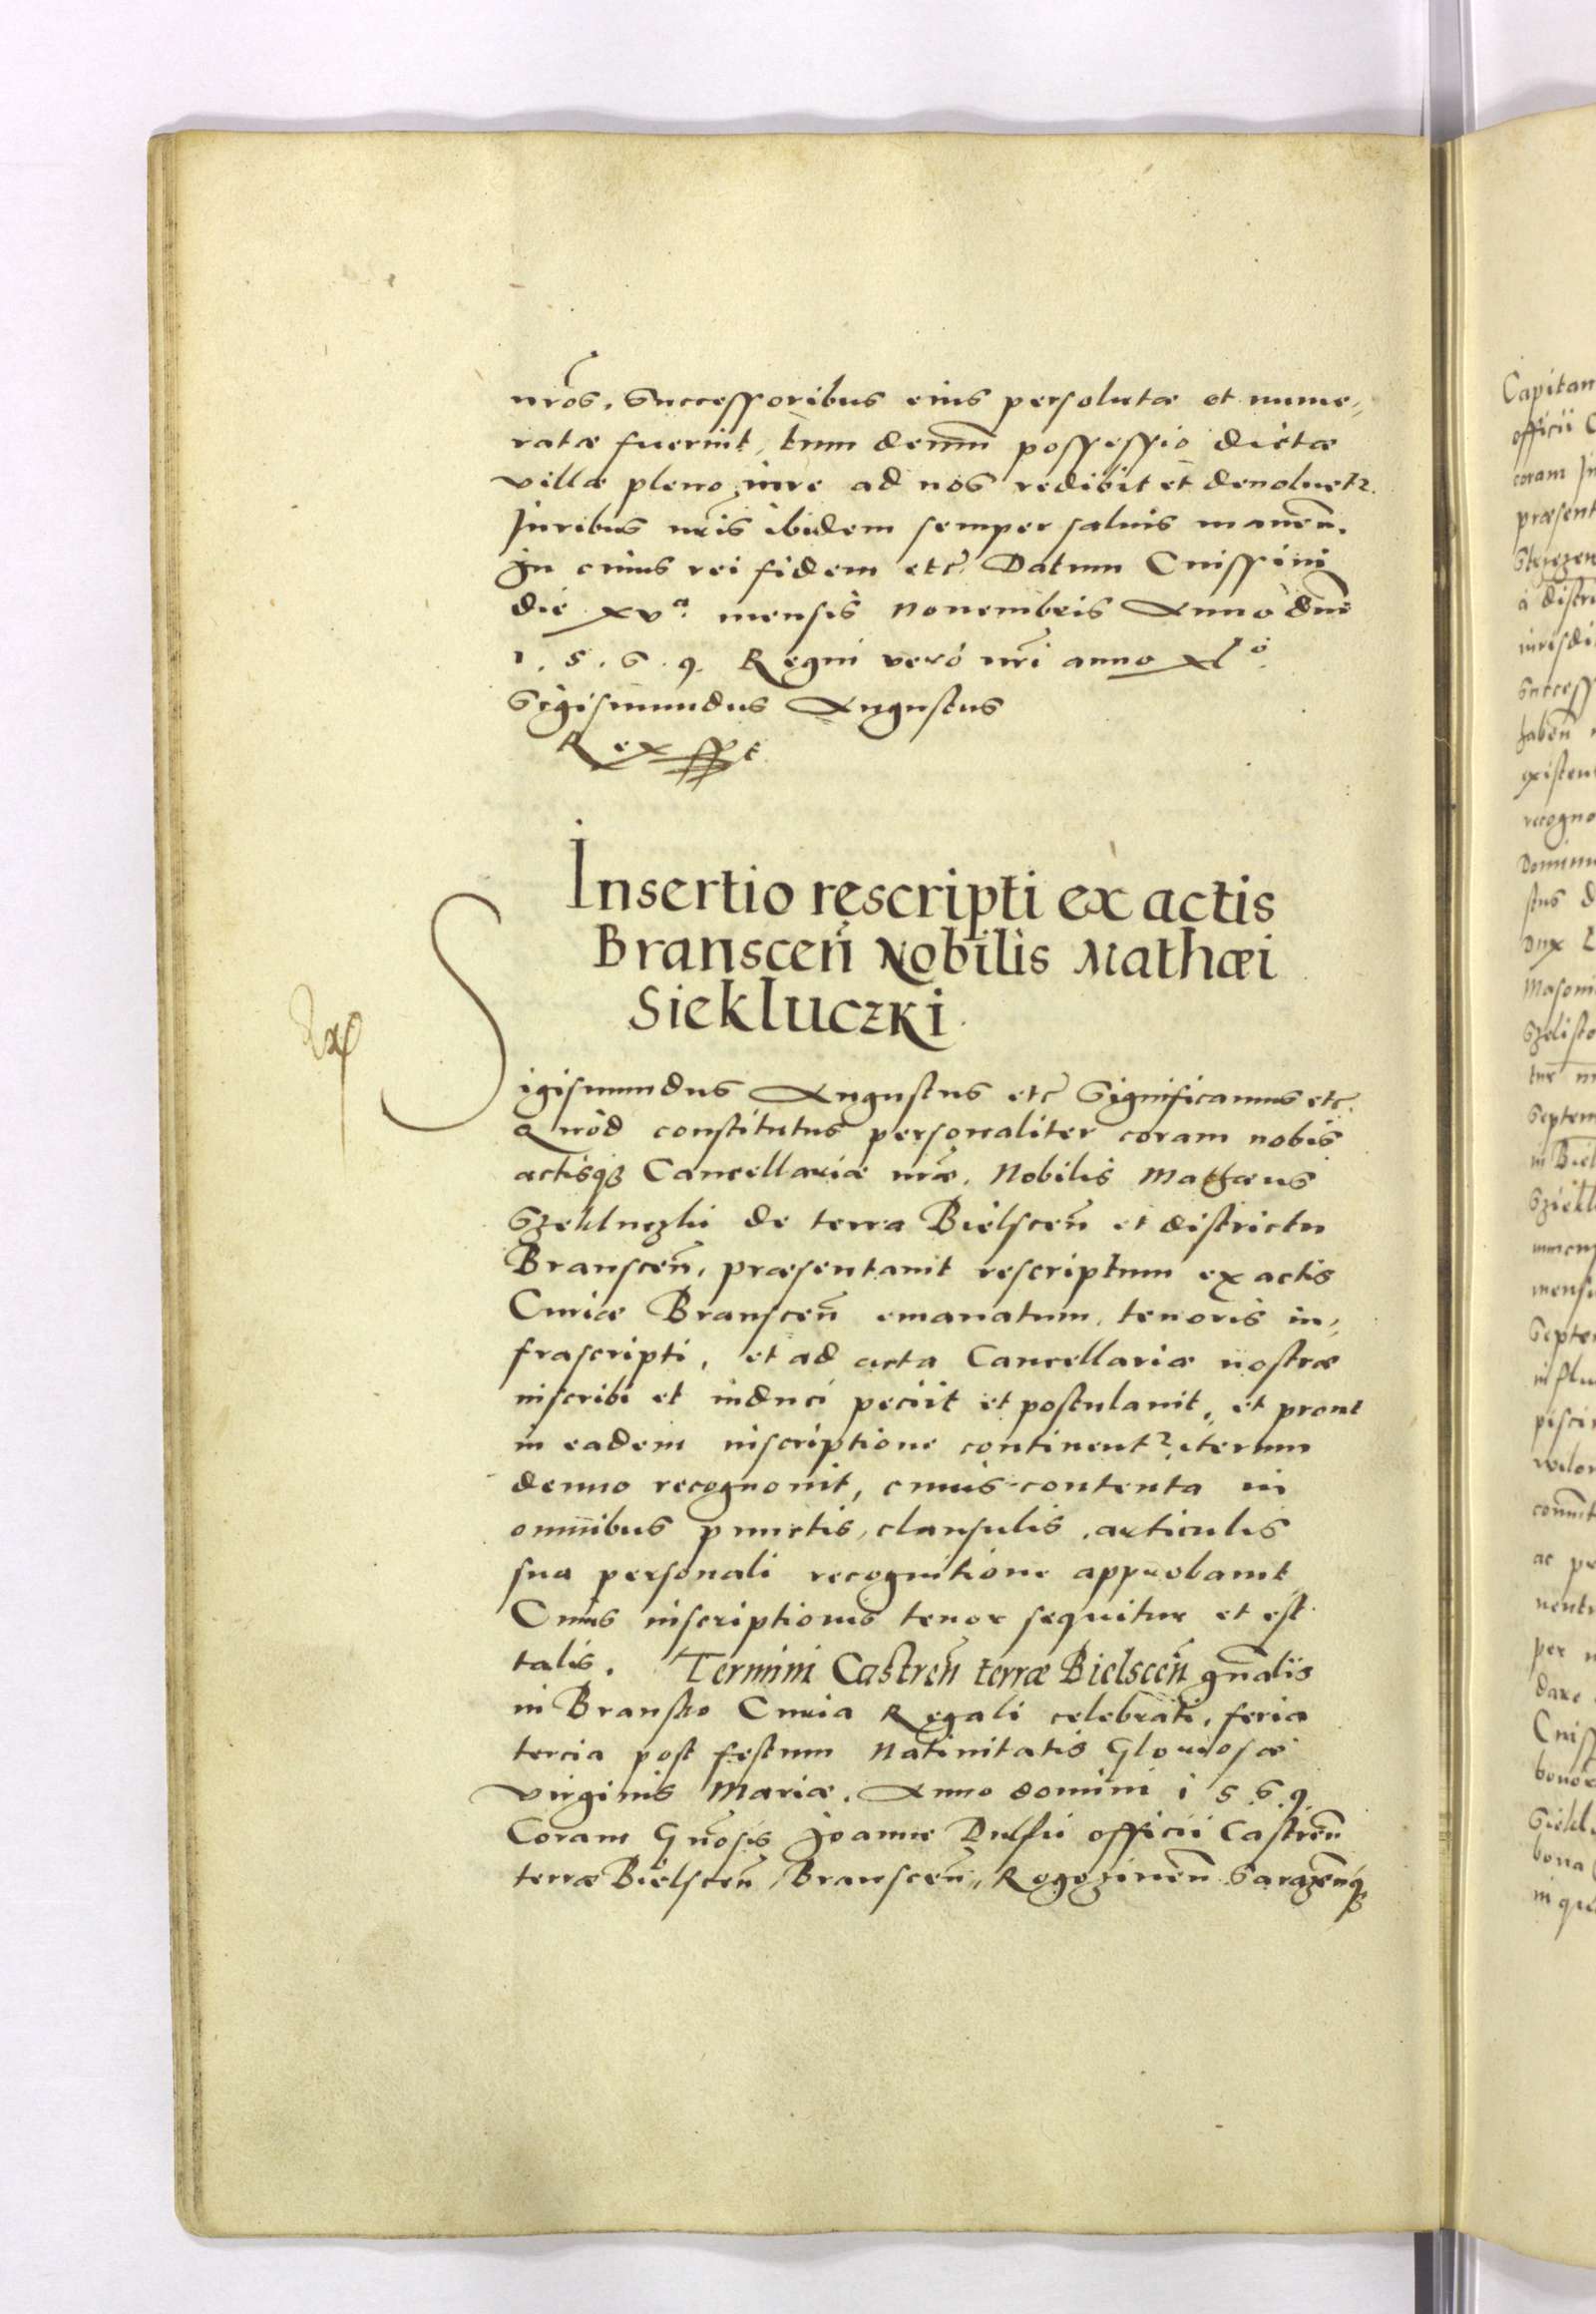 nr̃os, Successoribus eius persolutæ et nume,,
ratæ fuerint, tum demũ possessio dictæ
villæ pleno iure ad nos redibit et deuoluetr.
Iuribus nr̃is ibidem semper saluis maneñ.
In cuius rei fidem etc̃. Datum Cnissini
die xvᵃ. mensis Nouembris Anno dñi
1.5.6.9. Regni verò nr̃i anno xlᵒ.
Sigismundus Augustus
Rex sspt
Insertio rescripti ex actis
Bransceñ Nobilis Mathæi
Siekluczki.
Sigismundus Augustus etc̃ Significamus etc̃.
Quòd constitutus personaliter coram nobis
actisq₃ Cancellariæ nr̃æ. Nobilis Mathæus
Szekluczki de terra Bielsceñ et districtu
Bransceñ, præsentauit rescriptum ex actis
Curiæ Bransceñ emanatum, tenoris in,,
frascripti, et ad acta Cancellariæ nostræ
inscribi et induci peciit et postulauit, et prout
in eadem inscriptione continentr. iterum
denuo recognouit, cuius contenta in
omnibus punctis, clausulis, articulis
sua personali recognitione approbauit
Cuius inscriptionis tenor sequitur et est
talis. Termini Castreñ terræ Bielsceñ gñalis
in Bransko Curia Regali celebrati, feria
tercia post festum Natiuitatis Gloriosæ
virginis Mariæ. Anno domini 1569.
Coram Gñosis Joanne officii Castreñ
terræ Bielsceñ, Bransceñ, Rogozineñ Sarazeñq₃
Capitan
officii C
coram In
præsent
a distri
iurisdi
Success
habeñ
existen
recogno
Dominu
stus d
Dux L
Masoui
Septem
in Biel
Sziekl
mensi
Septe
in flu
pisci
ac pe
per
dare
Cniss
bonor
Siekl
bona
in qui